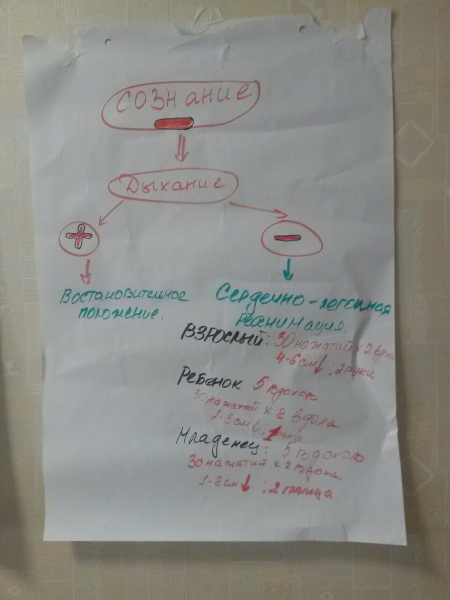 СОЗНАНИЕ
Дыхание
Востановительное
положение.
Сердечно-легочная
реанимация
ВЗРОСЛЫЙ: 30 нажатий к 2 вдоха
4-6 см ↓ : 2 руки
Ребёнок 5 вдохов
30 нажатий к 2 вдоха
2-3 см ↓ : 1 рука
Младенец: 5 вдохов
30 нажатия к 2 вдоха
1-2 см ↓ : 2 пальца.